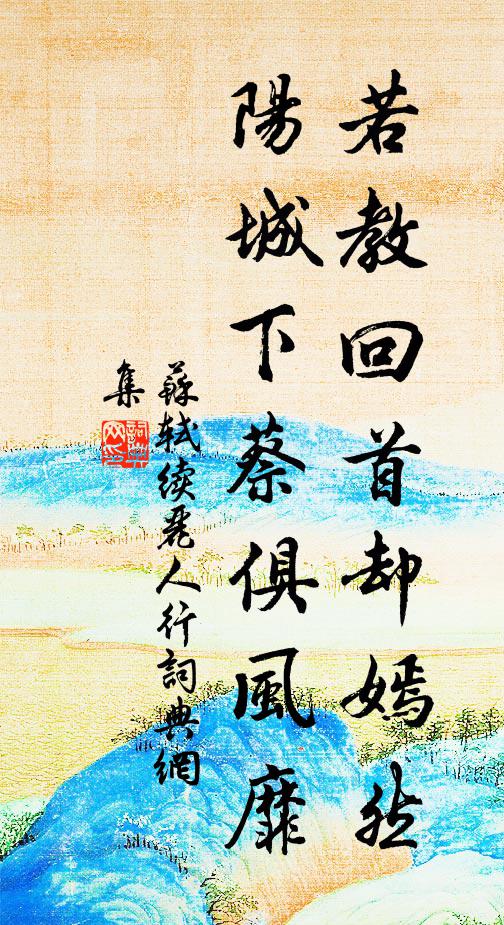 若教回首却嫣然
陽城下蔡俱風靡
蘇軾续麗人行詞典網
集